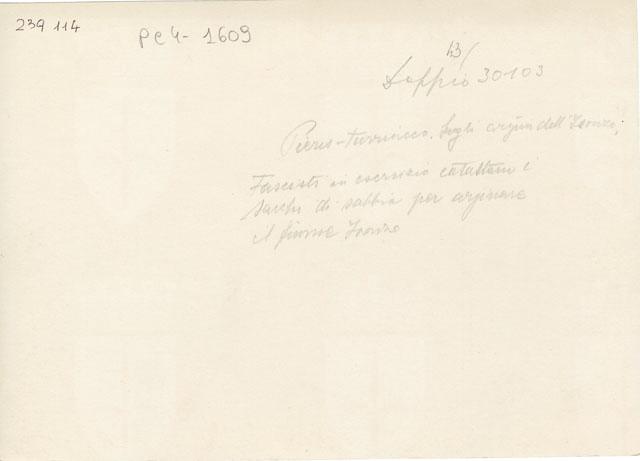 239 114
PC4-1609
43/
Doppio 30103
Pieris-Turriaco. Sugli argini dell'Isonzo,
Fascisti in esercizio catastano i
sacchi di sabbia per arginare
il fiume Isonzo